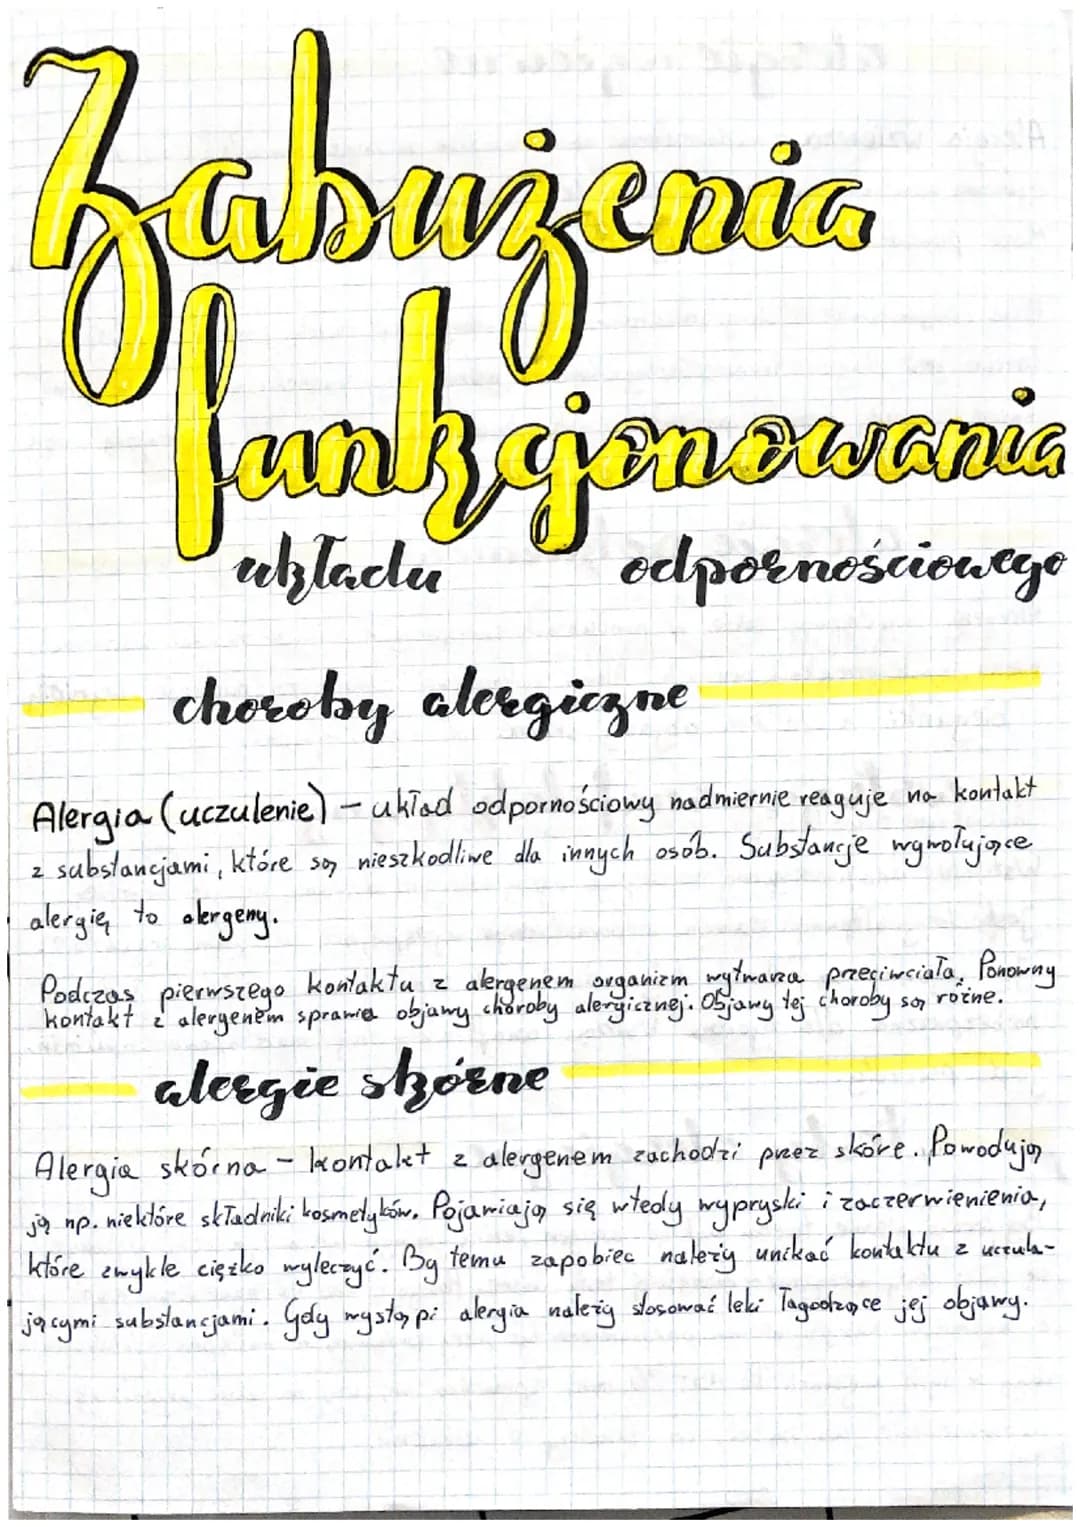 Zabużenia
funkcjonowania
układu odpornościowego
choroby alergiczne
Alergia (uczulenie) – układ odpornościowy nadmiernie reaguje na kontakt
z substancjami, które są nieszkodliwe dla innych osób. Substancje wywołujące
alergię to alergeny.
Podczas pierwszego kontaktu z alergenem organizm wytwarza przeciwciała. Ponowny
kontakt z alergenem sprawia objawy choroby alergicznej. Objawy tej choroby są różne.
alergie skórne
Alergia skórna – kontakt z alergenem zachodzi przez skóre. Powodują
ją np. niektóre składniki kosmetyków. Pojawiają się wtedy wypryski i zaczerwienienia,
które zwykle ciężko wyleczyć. By temu zapobiec należy unikać kontaktu z uczula-
jącymi substancjami. Gdy wystąpi alergia należy stosować leki łagodzące jej objawy.